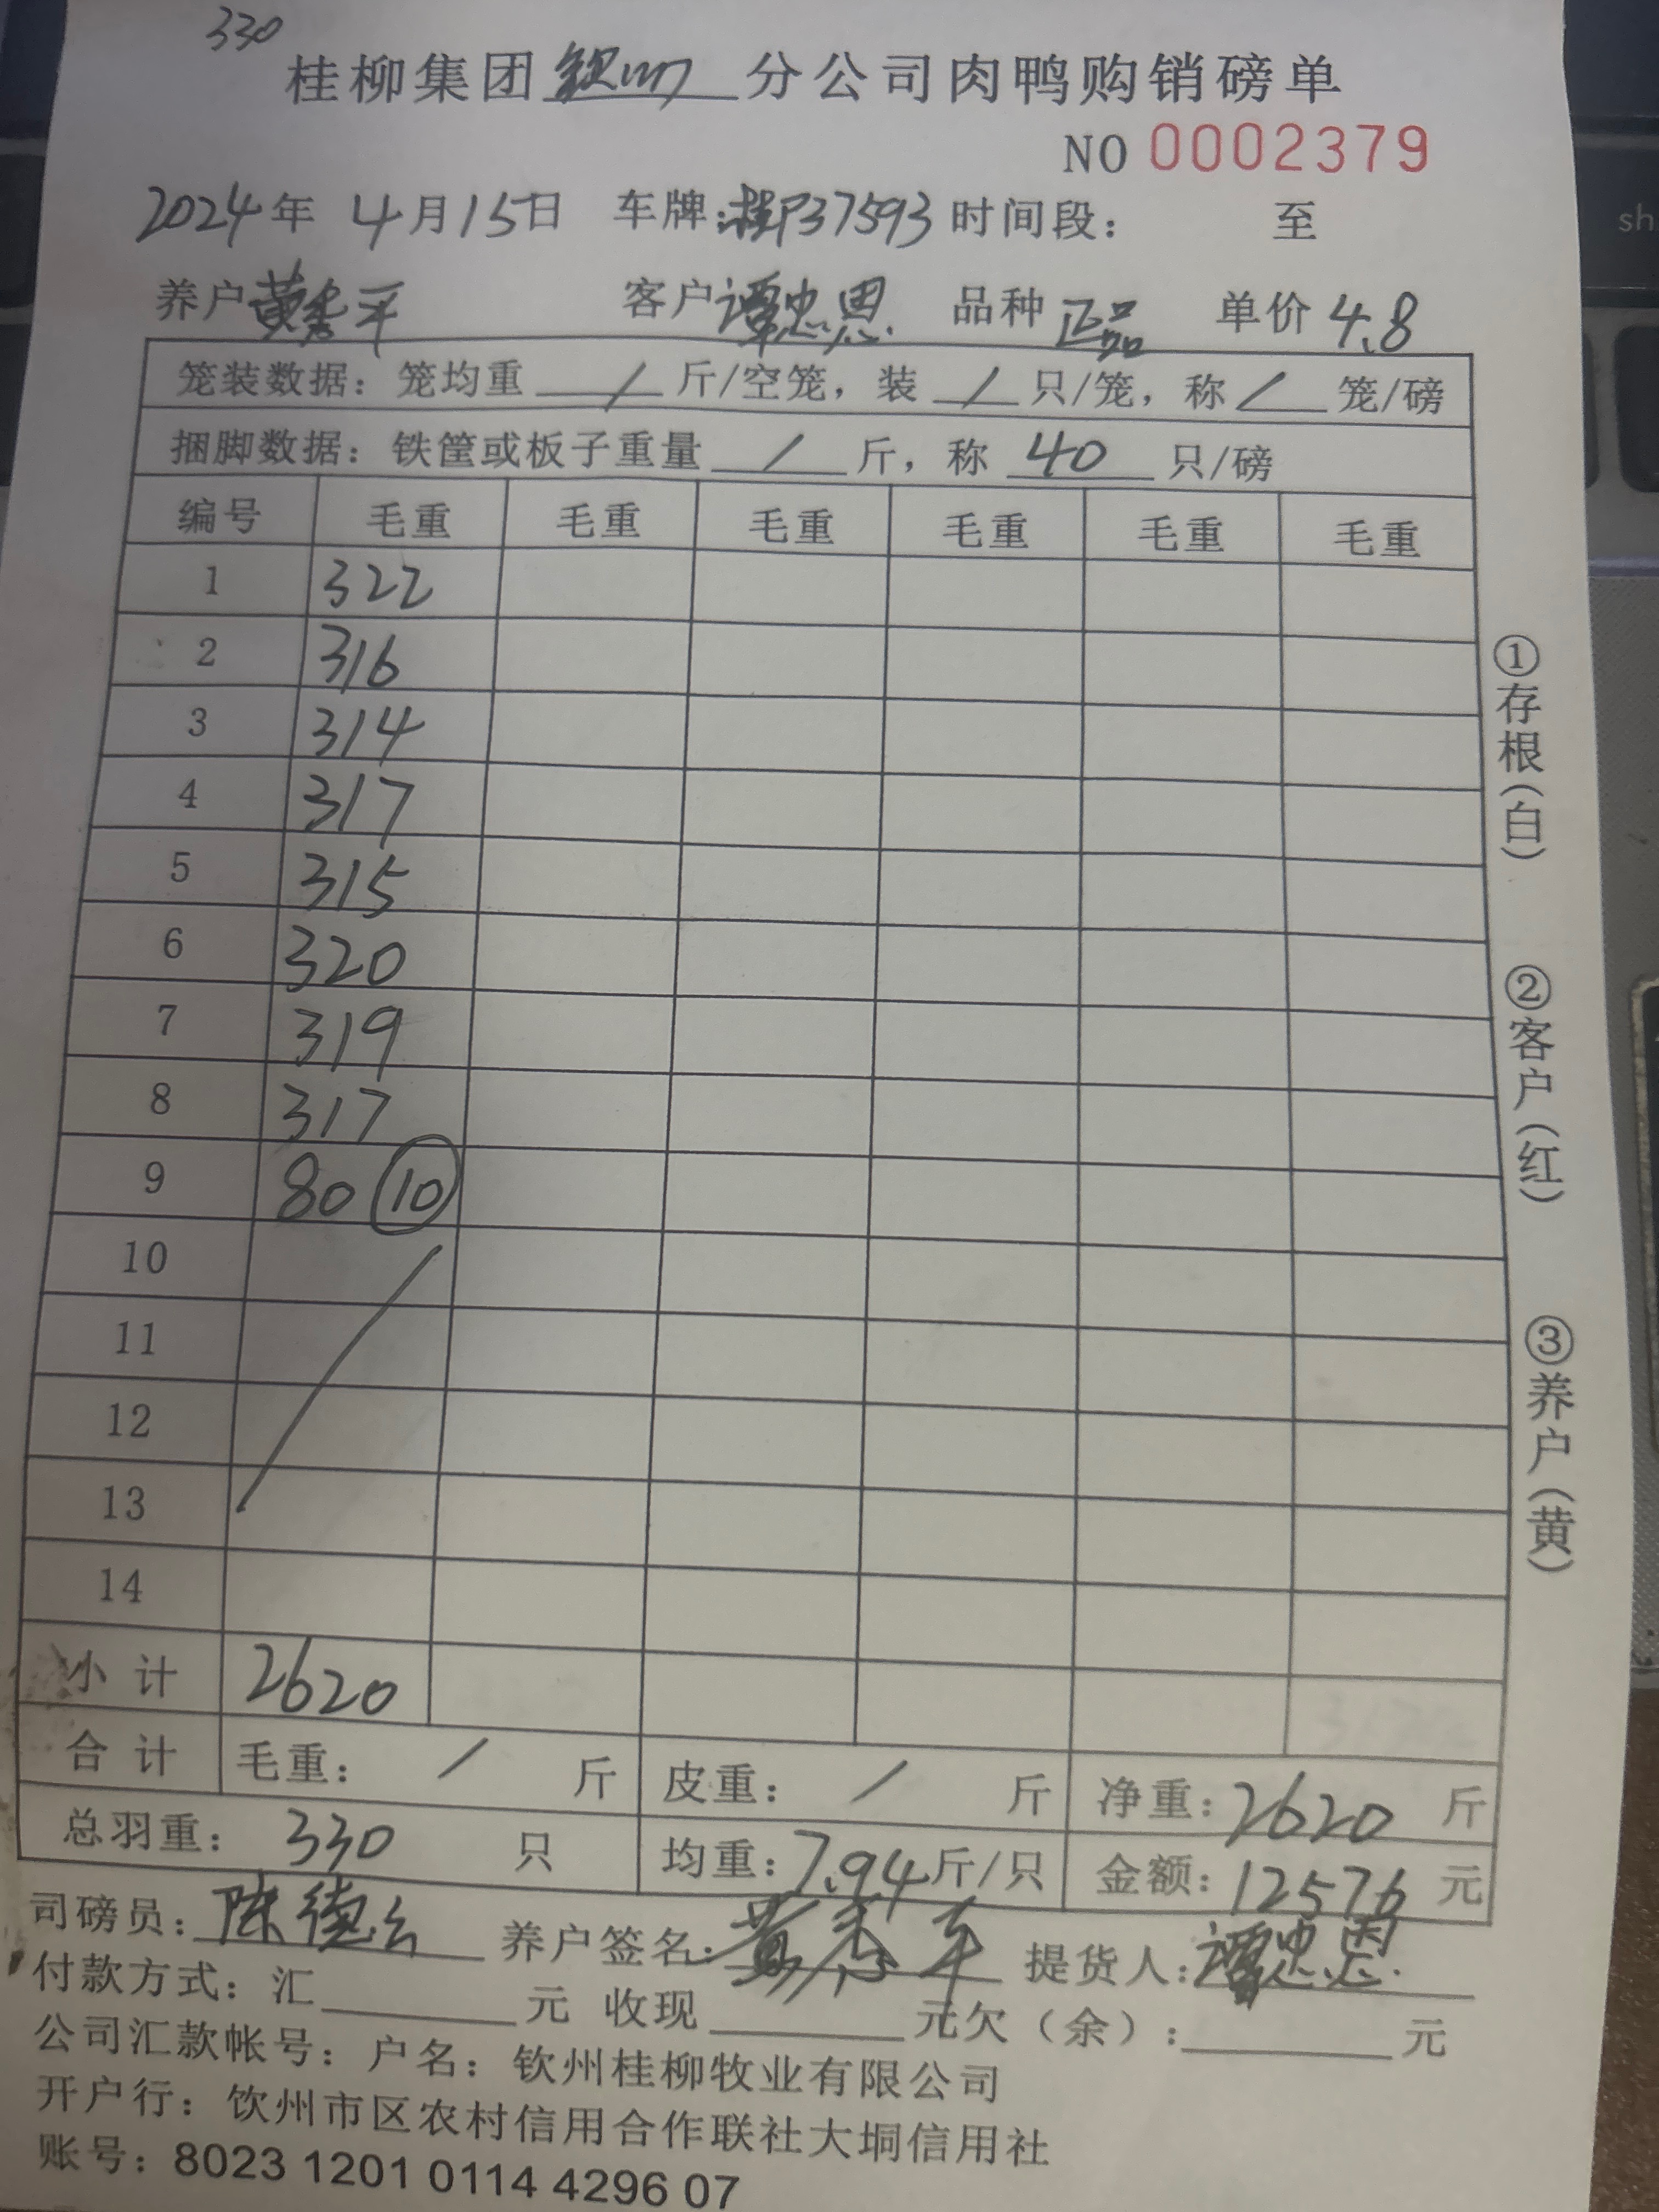 330
桂柳集团钦州分公司肉鸭购销磅单
NO 0002379
2024年 4月15日 车牌:桂P37593 时间段: 至
养户黄秀平 客户谭忠恩 品种正品 单价4.8
笼装数据: 笼均重 / 斤/空笼, 装 / 只/笼, 称 / 笼/磅
捆脚数据: 铁筐或板子重量 / 斤, 称 40 只/磅
编号 毛重 毛重 毛重 毛重 毛重 毛重
1 322
2 316
3 314
4 317
5 315
6 320
7 319
8 317
9 80 ⑩
10
11
12
13
14
小计 2620
合计 毛重: / 斤 皮重: / 斤 净重: 2620 斤
总羽重: 330 只 均重: 7.94斤/只 金额: 12576 元
司磅员: 陈德云 养户签名: 黄秀平 提货人: 谭忠恩
付款方式: 汇 元 收现 元欠(余): 元
公司汇款帐号: 户名: 钦州桂柳牧业有限公司
开户行: 钦州市区农村信用合作联社大垌信用社
账号: 8023 1201 0114 4296 07
①存根(白)
②客户(红)
③养户(黄)
sh